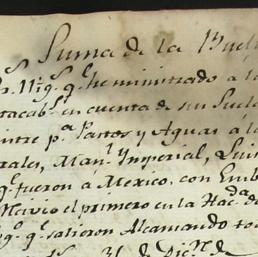 Suma de la Buel
r.s Mig.s q.e he ministrado à lo
atacab.s en cuenta de sus Sueld
intre p.a Partos y Aguas á lo
rales, Man.l y Imperial, Luis
q.e fueron à Mexico, con Emb
Noivio el primero en la Hac.da de
q.e salieron Alcamando to
31, de Dic.re de